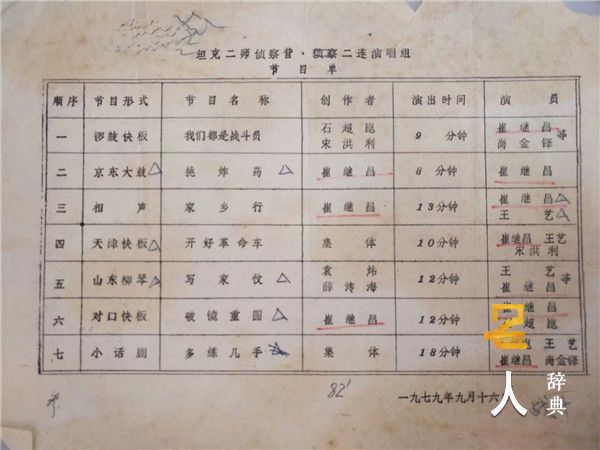 坦克二师侦察营、侦察二连演唱组
节目单
顺序 节目形式 节目名称 创作者 演出时间 演员
一 锣鼓快板 我们都是战斗员 石超崑 宋洪利 9分钟 崔继昌 尚金铎 等
二 京东大鼓 挑炸药 崔继昌 8分钟 崔继昌
三 相声 家乡行 崔继昌 13分钟 崔继昌 王艺
四 天津快板 开好革命车 集体 10分钟 崔继昌 王艺 宋洪利
五 山东柳琴 写家仪 袁炜 薛涛海 12分钟 王艺 崔继昌 等
六 对口快板 破镜重圆 崔继昌 12分钟 崔继昌 超崑
七 小话剧 多练几手 集体 18分钟 王艺 崔继昌 尚金铎
82'
一九七九年九月十六
名人辞典